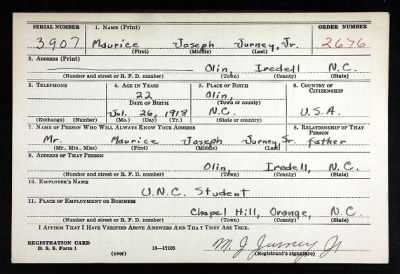 SERIAL NUMBER 1. NAME (Print) ORDER NUMBER
3907 Maurice Joseph Jurney, Jr. 2676
(First) (Middle) (Last)
2. ADDRESS (Print)
Olin, Iredell N.C.
(Number and street or R. F. D. number) (Town) (County) (State)
3. TELEPHONE 4. AGE IN YEARS 5. PLACE OF BIRTH 6. COUNTRY OF CITIZENSHIP
22 Olin,
DATE OF BIRTH (Town or county)
Jul. 26, 1918 N.C. U.S.A.
(Exchange) (Number) (Mo.) (Day) (Yr.) (State or country)
7. NAME OF PERSON WHO WILL ALWAYS KNOW YOUR ADDRESS 8. RELATIONSHIP OF THAT PERSON
Mr. Maurice Joseph Jurney, Sr. father
(Mr., Mrs., Miss) (First) (Middle) (Last)
9. ADDRESS OF THAT PERSON
Olin, Iredell, N.C.
(Number and street or R. F. D. number) (Town) (County) (State)
10. EMPLOYER'S NAME
U.N.C. Student
11. PLACE OF EMPLOYMENT OR BUSINESS
Chapel Hill, Orange, N.C.
(Number and street or R. F. D. number) (Town) (County) (State)
I AFFIRM THAT I HAVE VERIFIED ABOVE ANSWERS AND THAT THEY ARE TRUE.
REGISTRATION CARD
D. S. S. Form 1 16—17105 M. J. Jurney Jr
(over) (Registrant's signature)